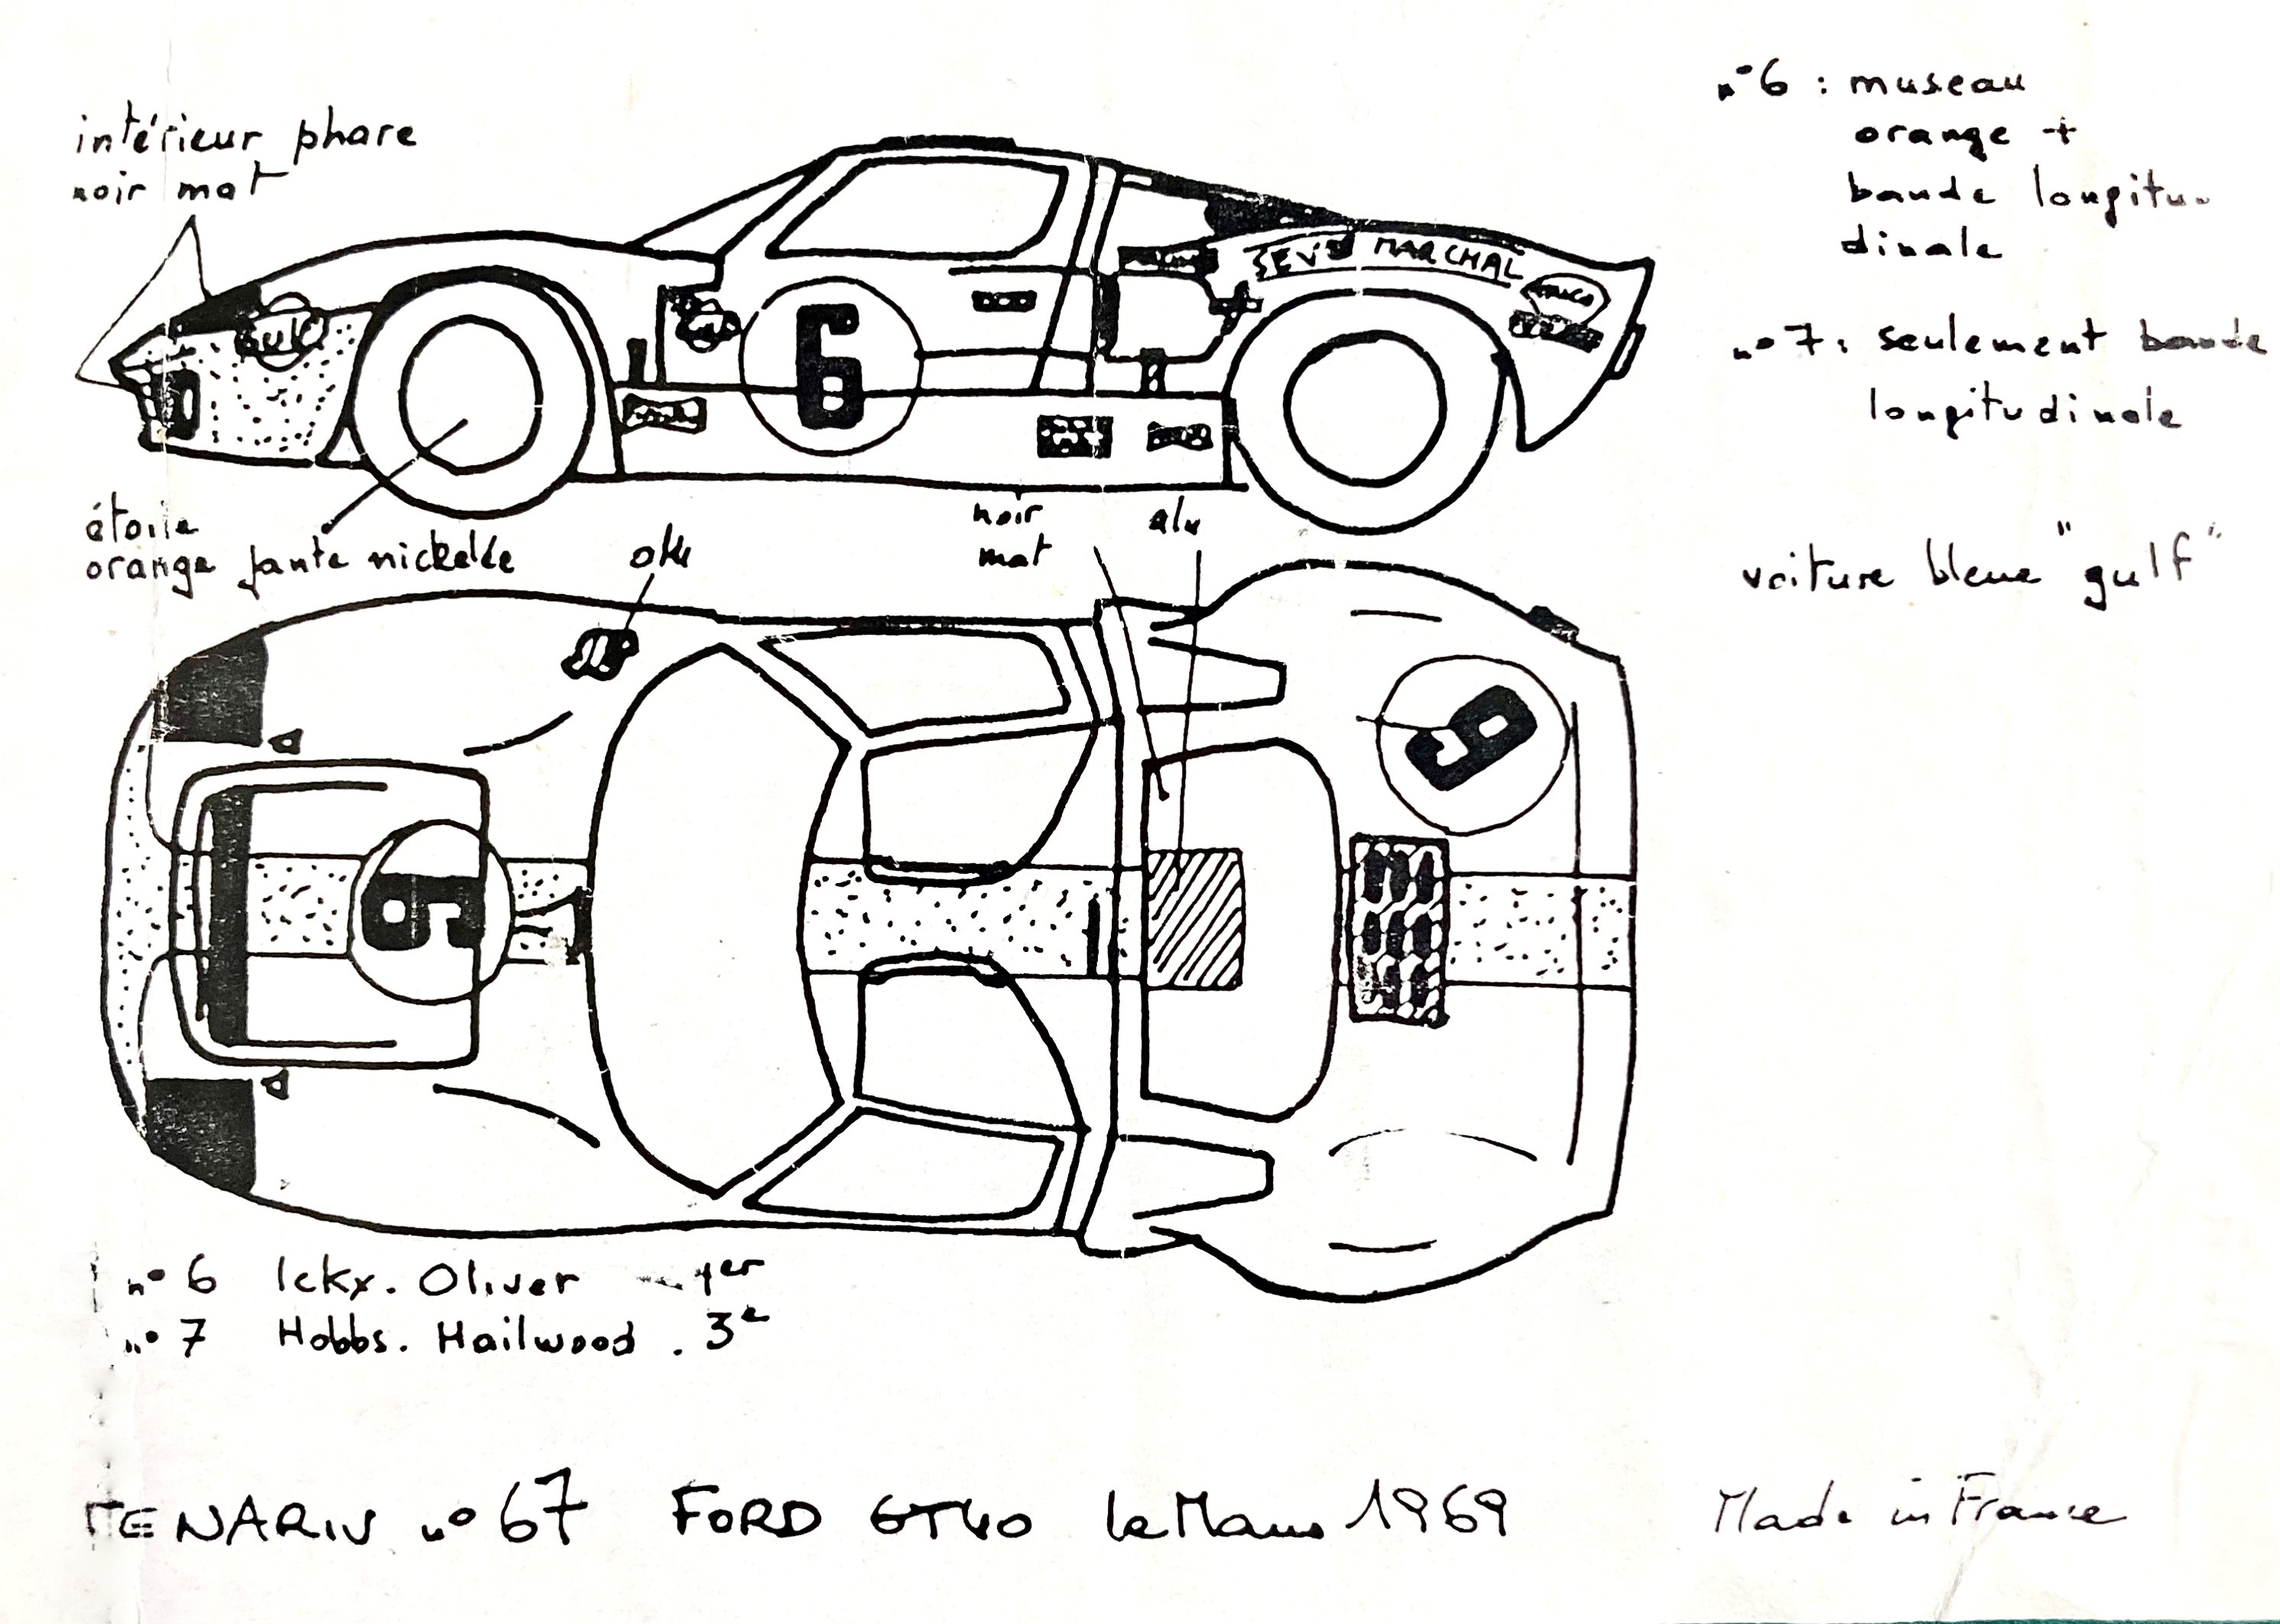 intérieur phare
noir mat
n° 6 : museau
orange +
bande longitu-
dinale
n° 7 : seulement bande
longitudinale
voiture bleue "gulf"
GULF
6
SEV MARCHAL
étoile
orange jante nickelée
noir
mat
alu
6
6
n° 6 Ickx. Oliver 1er
n° 7 Hobbs. Hailwood . 3e
TENARIV n° 67 FORD GT40 le Mans 1969 Made in France